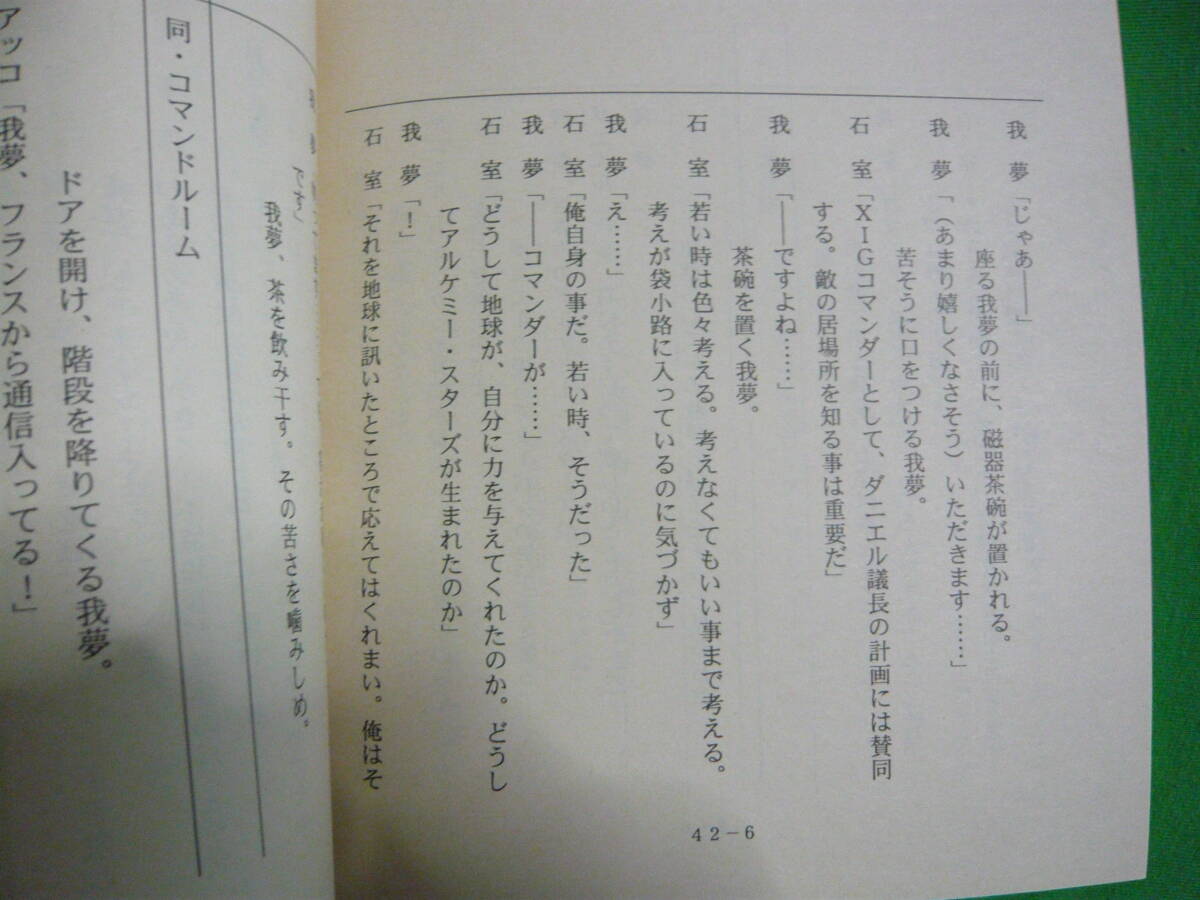 我　夢「じゃあ――」
座る我夢の前に、磁器茶碗が置かれる。
我　夢「（あまり嬉しくなさそう）いただきます……」
苦そうに口をつける我夢。
石　室「XIGコマンダーとして、ダニエル議長の計画には賛同
する。敵の居場所を知る事は重要だ」
我　夢「――ですよね……」
茶碗を置く我夢。
石　室「若い時は色々考える。考えなくてもいい事まで考える。
考えが袋小路に入っているのに気づかず」
我　夢「え……」
石　室「俺自身の事だ。若い時、そうだった」
我　夢「――コマンダーが……」
石　室「どうして地球が、自分に力を与えてくれたのか。どうし
てアルケミー・スターズが生まれたのか」
我　夢「！」
石　室「それを地球に訊いたところで応えてはくれまい。俺はそ
42－6
です」
我夢、茶を飲み干す。その苦さを噛みしめ。
同・コマンドルーム
ドアを開け、階段を降りてくる我夢。
アッコ「我夢、フランスから通信入ってる！」